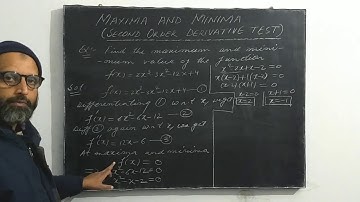 MAXIMA AND MINIMA
(SECOND ORDER DERIVATIVE TEST)
Find the maximum and mini-
mum value of the function
f(x) = 2x³-3x²-12x+4
Sol
f(x) = 2x³-3x²-12x+4 -①
Differentiating ① w.r.t x, we get
f'(x) = 6x²-6x-12 -②
Diff ② again w.r.t x, we get
f''(x) = 12x-6 -③
At maxima and minima
f'(x) = 0
6x²-6x-12=0
x²-x-2=0
x²-2x+x-2=0
x(x-2)+1(x-2)=0
(x-2)(x+1)=0
x-2=0 x+1=0
x=2 x=-1